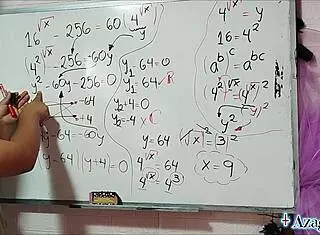 16^√x - 256 = 60(4^√x)
(4²)^√x - 256 = 60y
y² - 60y - 256 = 0
-64
+4
y - 64 = -60y
y - 64 | y + 4 | = 0
y₁ - 64 = 0
y₁ = 64
y₂ + 4 = 0
y₂ = -4 x
y = 64
4^√x = 64
4^√x = 4^3
4^√x = y
16 = 4²
(a^b)^c = a^bc
(4²)^√x = (4^√x)²
y²
√x² = 3²
x = 9
+ Azag